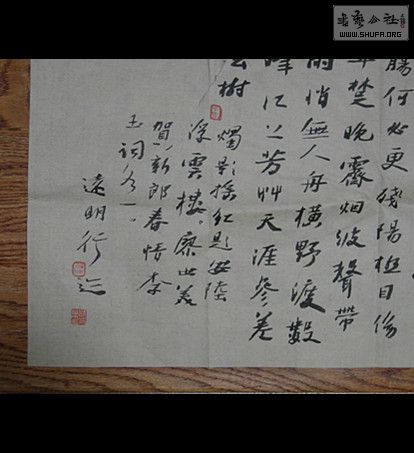 書藝公社
WWW.SHUFA.ORG
腸何必更殘陽極目傷
平楚晚霽烟波聲帶
雨悄無人舟橫野渡數
峰江上芳艸天涯參差
樹
燭影摇紅題安陸
浮雲樓。廖世美
賀新郎春情李
玉詞各一。
遠明行